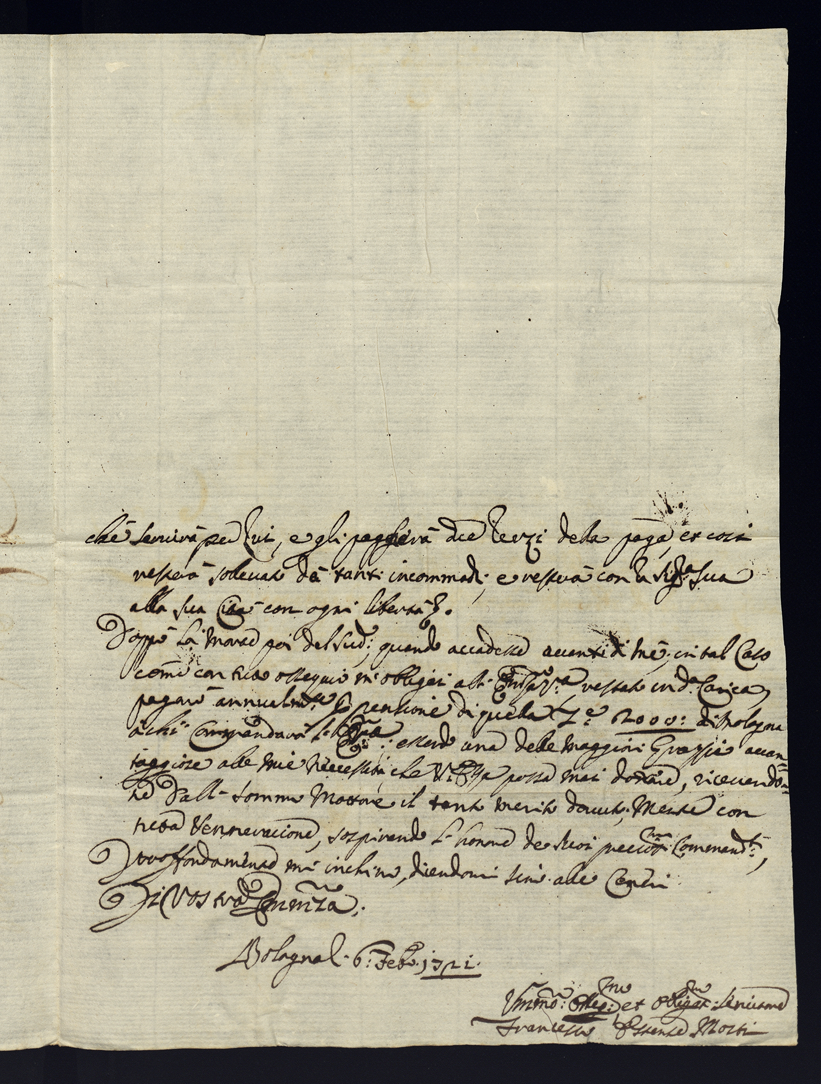 che servirà per lui, e gli pagherà due terzi della paga, et così
resterà sollevato dà tanti incommodi, e resterà con la Sig.ra Sua
alla sua Città con ogni libertà.
Doppò la Morte poi del Sud.; quando accadesse avanti di mè, in tal Caso
come con tutto ossequio m'obligai all' Em.za V.ra restato in d.a Carica,
pagarò annualm.te pensione di quelle L.e 2000: di Bologna
à chi Commandarà l'; essendo una delle maggiori Grazie avan-
taggiose alle mie Necessità, che V. possa mai donare, ricevendo-
ne dall' sommo Mottore il tanto merito dovuto; Mentre con
tutta Vennerazione, sospirando l'honore de suoi Commend.ti,
Proffondamente mi inchino, dicendomi sin' alle Ceneri
Di Vostra Eminenza.
Bologna l. 6. Feb. 1721.
Umil.mo: et Oblig.mo: Servitore
Francesco Estense Mosti